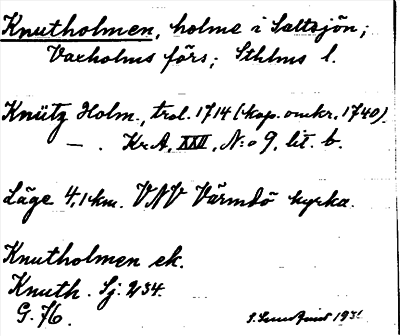 Knutholmen, holme i Saltsjön;
Vaxholms förs; Sthlms l.
Knütz Holm., trol. 1714 (kop. omkr. 1740).
— . Kr.A, XXII, N:o 9, lit. b.
Läge 4,1 km. VNV Värmdö kyrka.
Knutholmen ek.
Knuth. Sj: 234.
G. 76.